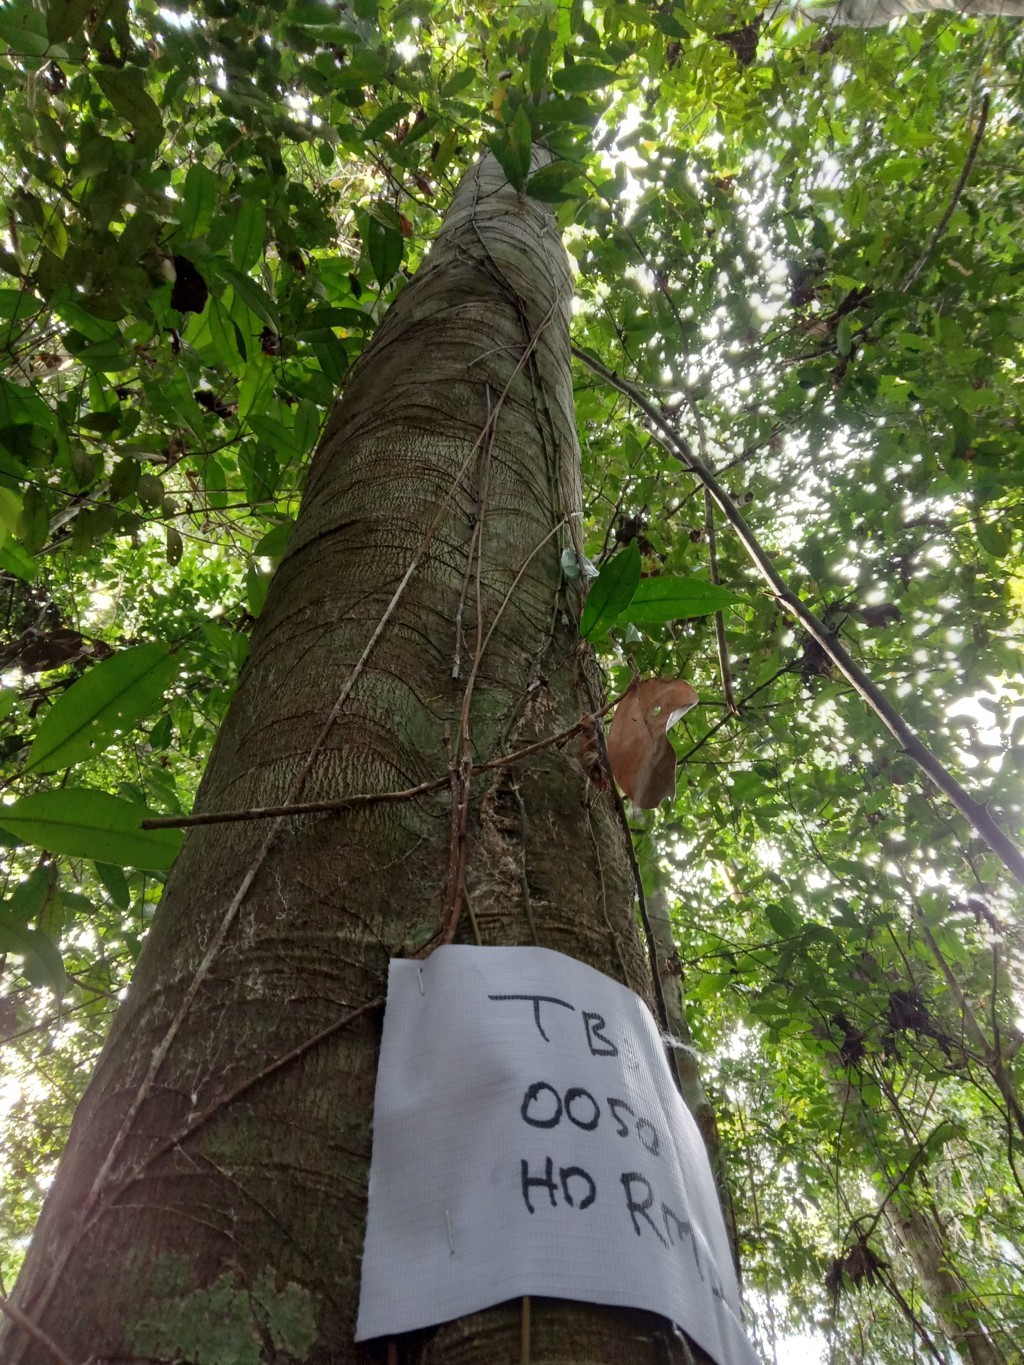 TB
0050
HD RM